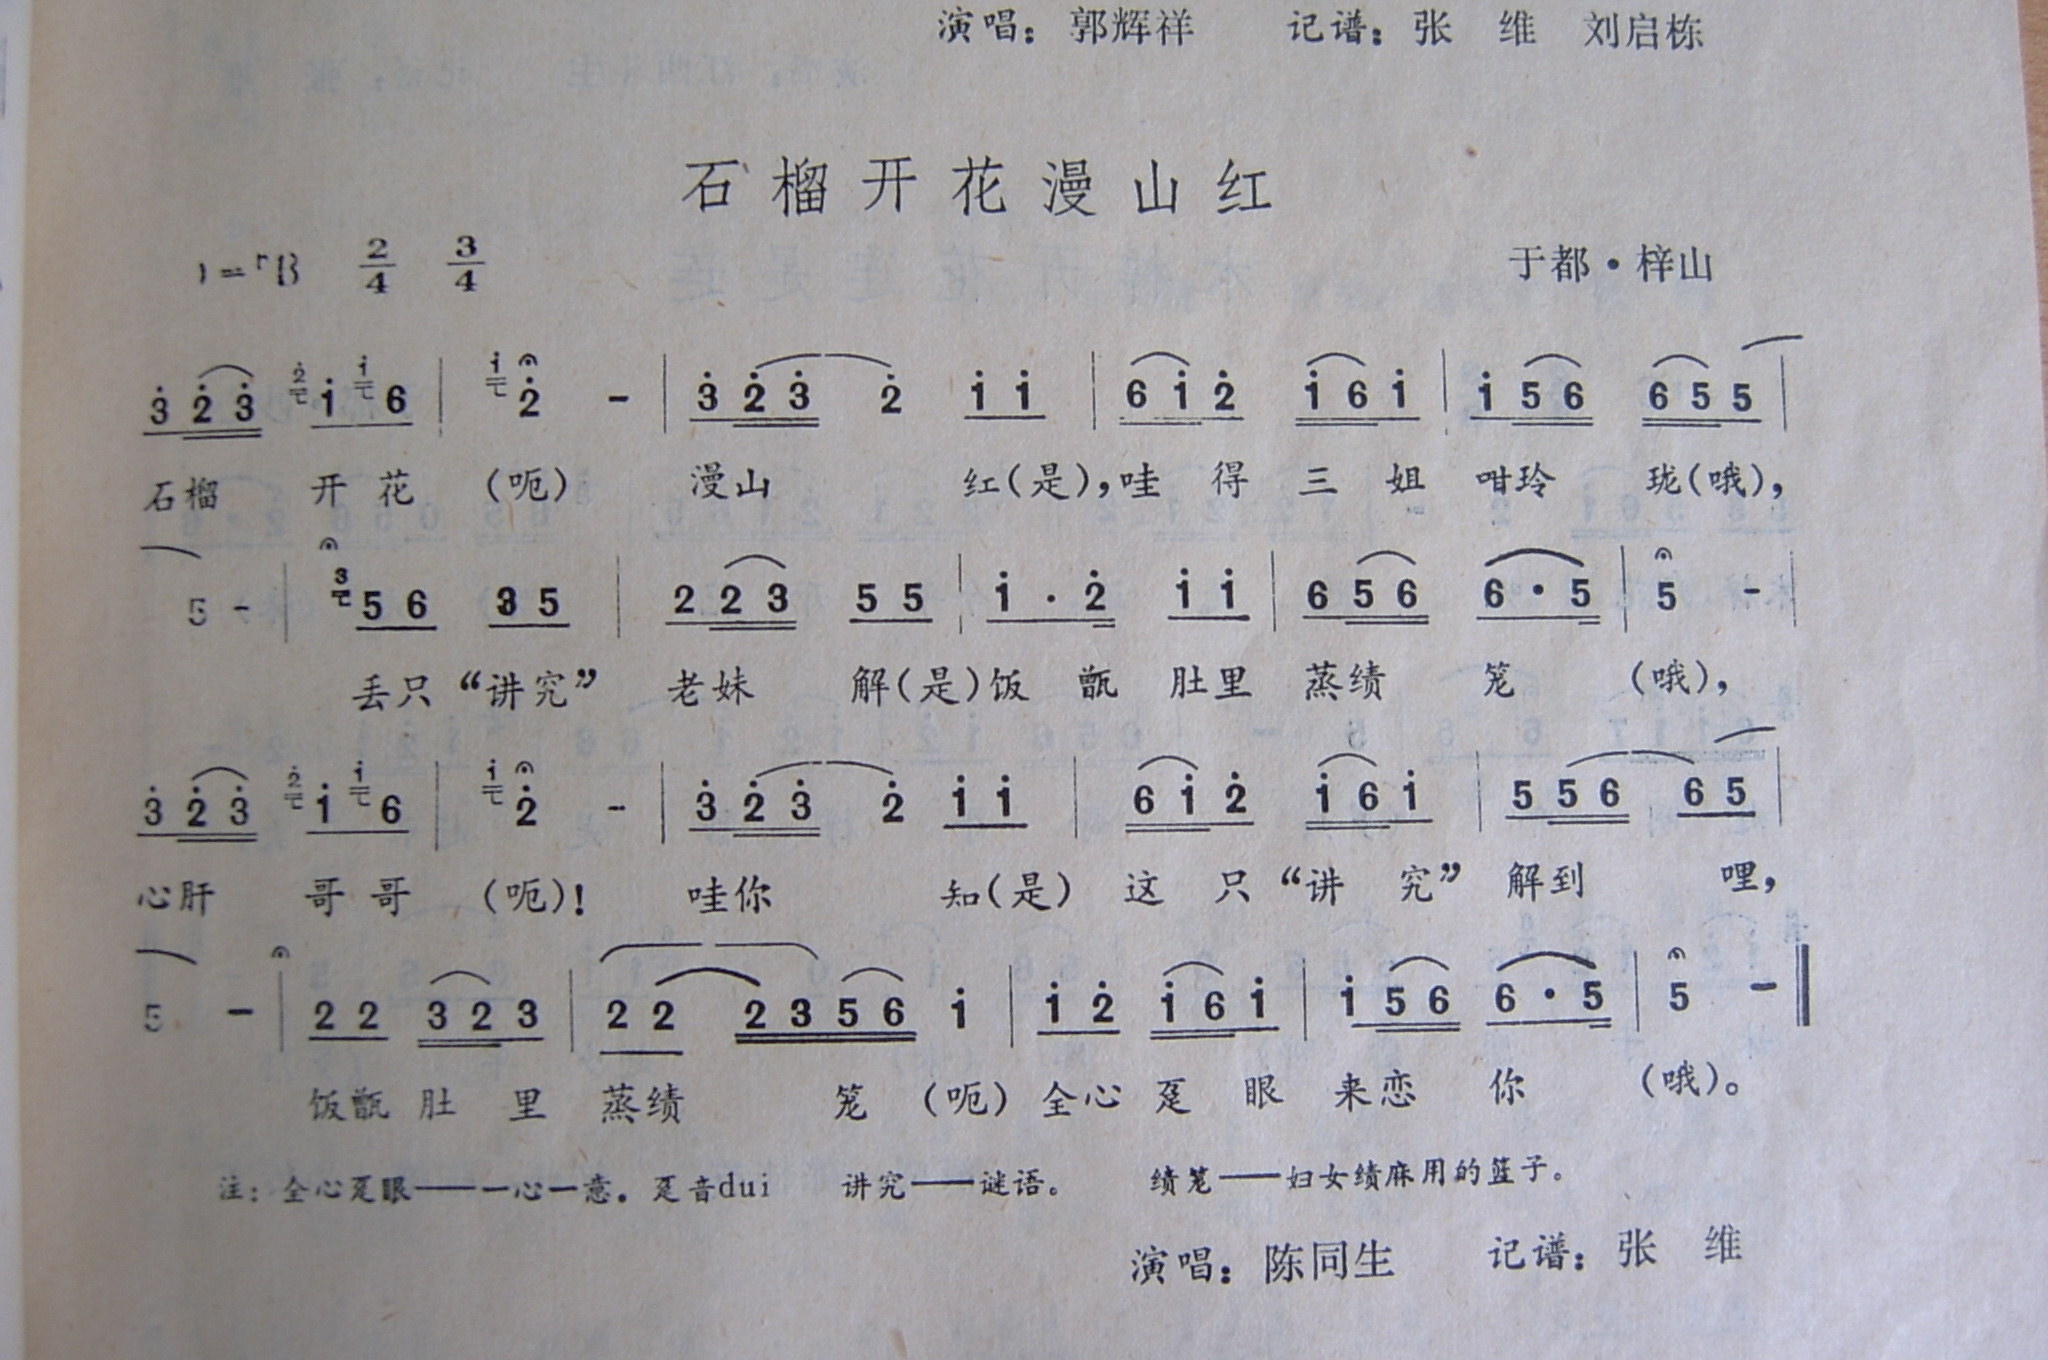 演唱：郭辉祥 记谱：张 维 刘启栋
石榴开花漫山红
2/4 3/4
于都·梓山
3̇ 2̇ 3̇ 2̇ 1̇ 1̇ 6 | 1̇ 2̇ - | 3̇ 2̇ 3̇ 2̇ 1̇ 1̇ | 6 1̇ 2̇ 1̇ 6 1̇ | 1̇ 5 6 6 5 5 |
石榴 开花 （呃） 漫山 红（是），哇 得 三 姐 咁玲 珑（哦），
5 - | 3 5 6 3 5 | 2 2 3 5 5 | 1̇ · 2̇ 1̇ 1̇ | 6 5 6 6 · 5 | 5 - |
丢只“讲究” 老妹 解（是）饭 甑 肚里 蒸绩 笼 （哦），
3̇ 2̇ 3̇ 2̇ 1̇ 1̇ 6 | 1̇ 2̇ - | 3̇ 2̇ 3̇ 2̇ 1̇ 1̇ | 6 1̇ 2̇ 1̇ 6 1̇ | 5 5 6 6 5 |
心肝 哥哥 （呃）！ 哇你 知（是） 这 只“讲 究” 解到 哩，
5 - | 2 2 3 2 3 | 2 2 2 3 5 6 1̇ | 1̇ 2̇ 1̇ 6 1̇ | 1̇ 5 6 6 · 5 | 5 - ‖
饭甑 肚 里 蒸绩 笼 （呃） 全心 趸 眼 来恋 你 （哦）。
注：全心趸眼——一心一意。趸音dui 讲究——谜语。 绩笼——妇女绩麻用的篮子。
演唱：陈同生 记谱：张 维